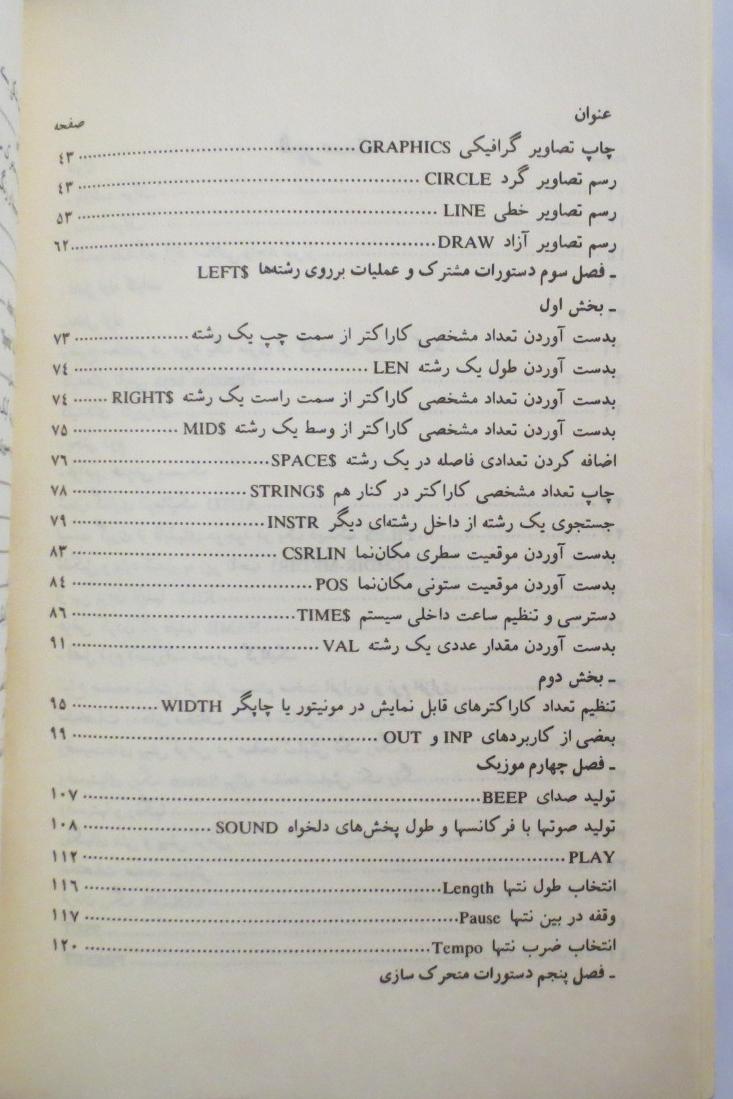 عنوان
صفحه
چاپ تصاویر گرافیکی GRAPHICS ........ ٤٣
رسم تصاویر گرد CIRCLE ........ ٤٣
رسم تصاویر خطی LINE ........ ۵۳
رسم تصاویر آزاد DRAW ........ ٦٢
ـ فصل سوم دستورات مشترک و عملیات برروی رشته‌ها LEFT$
ـ بخش اول
بدست آوردن تعداد مشخصی کاراکتر از سمت چپ یک رشته ........ ۷۳
بدست آوردن طول یک رشته LEN ........ ۷٤
بدست آوردن تعداد مشخصی کاراکتر از سمت راست یک رشته RIGHT$ ........ ۷٤
بدست آوردن تعداد مشخصی کاراکتر از وسط یک رشته MID$ ........ ۷۵
اضافه کردن تعدادی فاصله در یک رشته SPACE$ ........ ۷٦
چاپ تعداد مشخصی کاراکتر در کنار هم STRING$ ........ ۷۸
جستجوی یک رشته از داخل رشته‌ای دیگر INSTR ........ ۷۹
بدست آوردن موقعیت سطری مکان‌نما CSRLIN ........ ۸۳
بدست آوردن موقعیت ستونی مکان‌نما POS ........ ۸٤
دسترسی و تنظیم ساعت داخلی سیستم TIME$ ........ ۸٦
بدست آوردن مقدار عددی یک رشته VAL ........ ۹۱
ـ بخش دوم
تنظیم تعداد کاراکترهای قابل نمایش در مونیتور یا چاپگر WIDTH ........ ۹۵
بعضی از کاربردهای INP و OUT ........ ۹۹
ـ فصل چهارم موزیک
تولید صدای BEEP ........ ۱۰۷
تولید صوتها با فرکانسها و طول پخش‌های دلخواه SOUND ........ ۱۰۸
PLAY ........ ۱۱۲
انتخاب طول نتها Length ........ ۱۱٦
وقفه در بین نتها Pause ........ ۱۱۷
انتخاب ضرب نتها Tempo ........ ۱۲۰
ـ فصل پنجم دستورات متحرک سازی